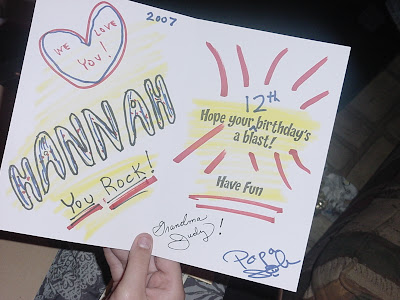 2007
WE LOVE
YOU!
HANNAH
YOU ROCK!
12th
Hope your birthday's
a blast!
Have Fun
Grandma
Judy!
Papa